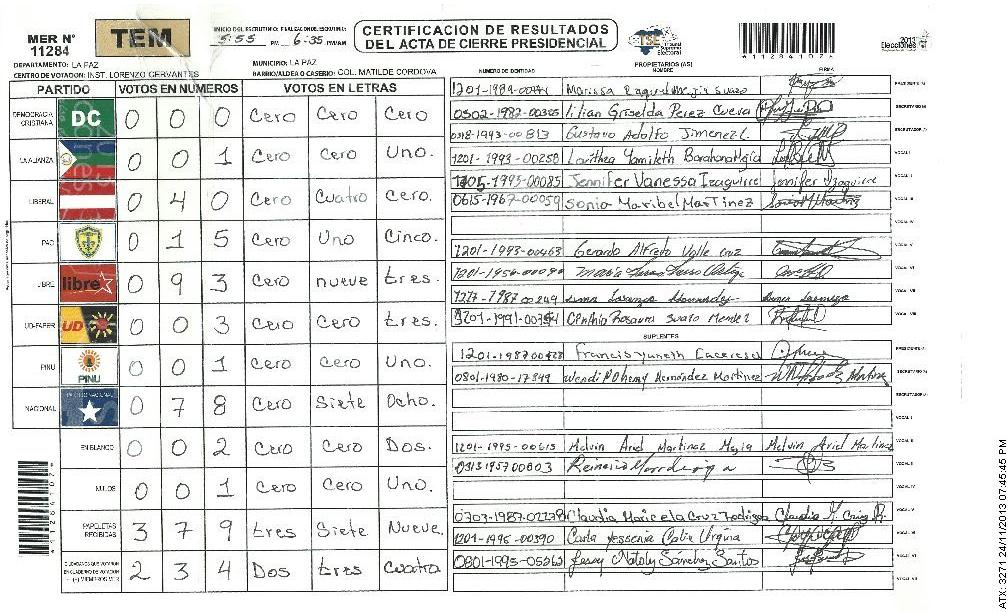 MER N° 11284
TEM
INICIO DEL ESCRUTINIO: FINALIZACION DE ESCRUTINIO:
5:55 PM 6-35 PM/AM
CERTIFICACION DE RESULTADOS
DEL ACTA DE CIERRE PRESIDENCIAL
TSE Tribunal Supremo Electoral
*1128410?*
2013 Elecciones
DEPARTAMENTO: LA PAZ
MUNICIPIO: LA PAZ
CENTRO DE VOTACION: INST. LORENZO CERVANTES
BARRIO/ALDEA O CASERIO: COL. MATILDE CORDOVA
PROPIETARIOS (AS)
NUMERO DE IDENTIDAD NOMBRE FIRMA
PARTIDO VOTOS EN NUMEROS VOTOS EN LETRAS
DEMOCRACIA CRISTIANA DC 0 0 0 Cero Cero Cero
LA ALIANZA 0 0 1 Cero Cero Uno.
LIBERAL 0 4 0 Cero Cuatro Cero.
PAC 0 1 5 Cero Uno Cinco.
LIBRE libre 0 9 3 Cero nueve tres.
UD-FAPER UD 0 0 3 Cero Cero tres.
PINU PINU 0 0 1 Cero Cero Uno.
NACIONAL 0 7 8 Cero Siete Ocho.
EN BLANCO 0 0 2 Cero Cero Dos.
NULOS 0 0 1 Cero Cero Uno.
PAPELETAS RECIBIDAS 3 7 9 tres Siete Nueve.
CIUDADANOS QUE VOTARON EN CUADERNO DE VOTACION (+) MIEMBROS MER 2 3 4 Dos tres Cuatro
Marissa Raquel Mejia Suazo PRESIDENTE (A)
0502-1987-00365 Lilian Griselda Perez Cueva SECRETARIO (A)
0318-1993-00813 Gustavo Adolfo Jimenez L. ESCRUTADOR (A)
1201-1993-00258 Yamileth Barahona Mejia VOCAL I
1705-1993-00085 Jennifer Vanessa Izaguirre Jennifer Izaguirre VOCAL II
0615-1967-00059 Sonia Maribel Martinez VOCAL III
VOCAL IV
1201-1993-00463 Gerardo Alfredo Valle Cruz VOCAL V
VOCAL VI
1217-1987-00249 VOCAL VII
Cinthia Rosaura Suazo Mendez VOCAL VIII
SUPLENTES
1201-1987-00428 Francis Yaneth Caceres PRESIDENTE (A)
0801-1980-17349 Hernández Martinez SECRETARIO (A)
ESCRUTADOR (A)
VOCAL I
1201-1995-00615 Melvin Ariel Martinez Mejia Melvin Ariel Martinez VOCAL II
0313195700803 VOCAL III
VOCAL IV
0703-1987-02278 Claudia Maricela Cruz Rodriguez VOCAL V
1201-1995-00390 Carla Yessenia VOCAL VI
Nataly Sánchez Santos VOCAL VII
VOCAL VIII
ATX: 3271 24/11/2013 07:45:45 PM